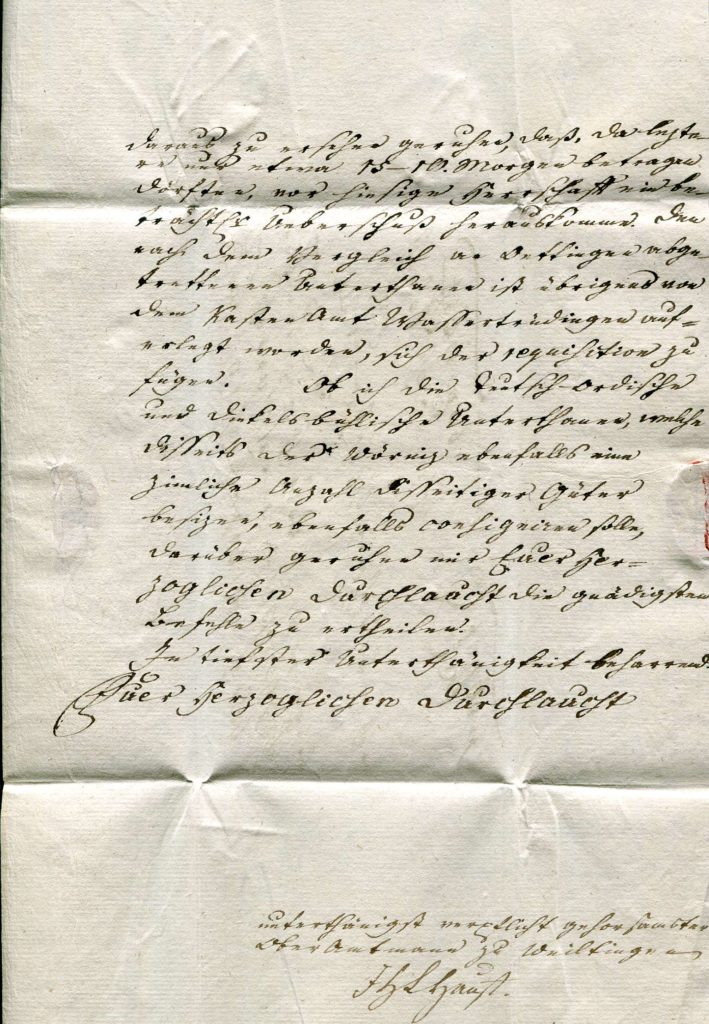 daraus zu ersehen geruhen, daß, da lezte-
re nur etwa 15-16. Morgen betragen
dörften, vor hiesige Herrschafft ein be-
trächtls Ueberschuß herauskomme. Den
nach dem Vergleich an Oettingen abge-
trettenen Unterthanen ist übrigens von
dem KastenAmt Wassertrüdingen auf-
erlegt worden, sich der requisition zu
fügen. Ob ich die Teutsch-Ordische
und Dinkelsbühlische Unterthanen, welche
disseits der Wörniz ebenfalls eine
zimliche Anzahl disseitiger Güter
besizen, ebenfalls consigniren solle,
darüber geruhen mir Euer Her-
zoglichen Durchlaucht die gnädigsten
Befehle zu ertheilen.
In tiefster Unterthänigkeit beharrend.
Euer Herzoglichen Durchlaucht
unterthänigst verpflicht gehorsamster
OberAmtmann zu Weiltingen